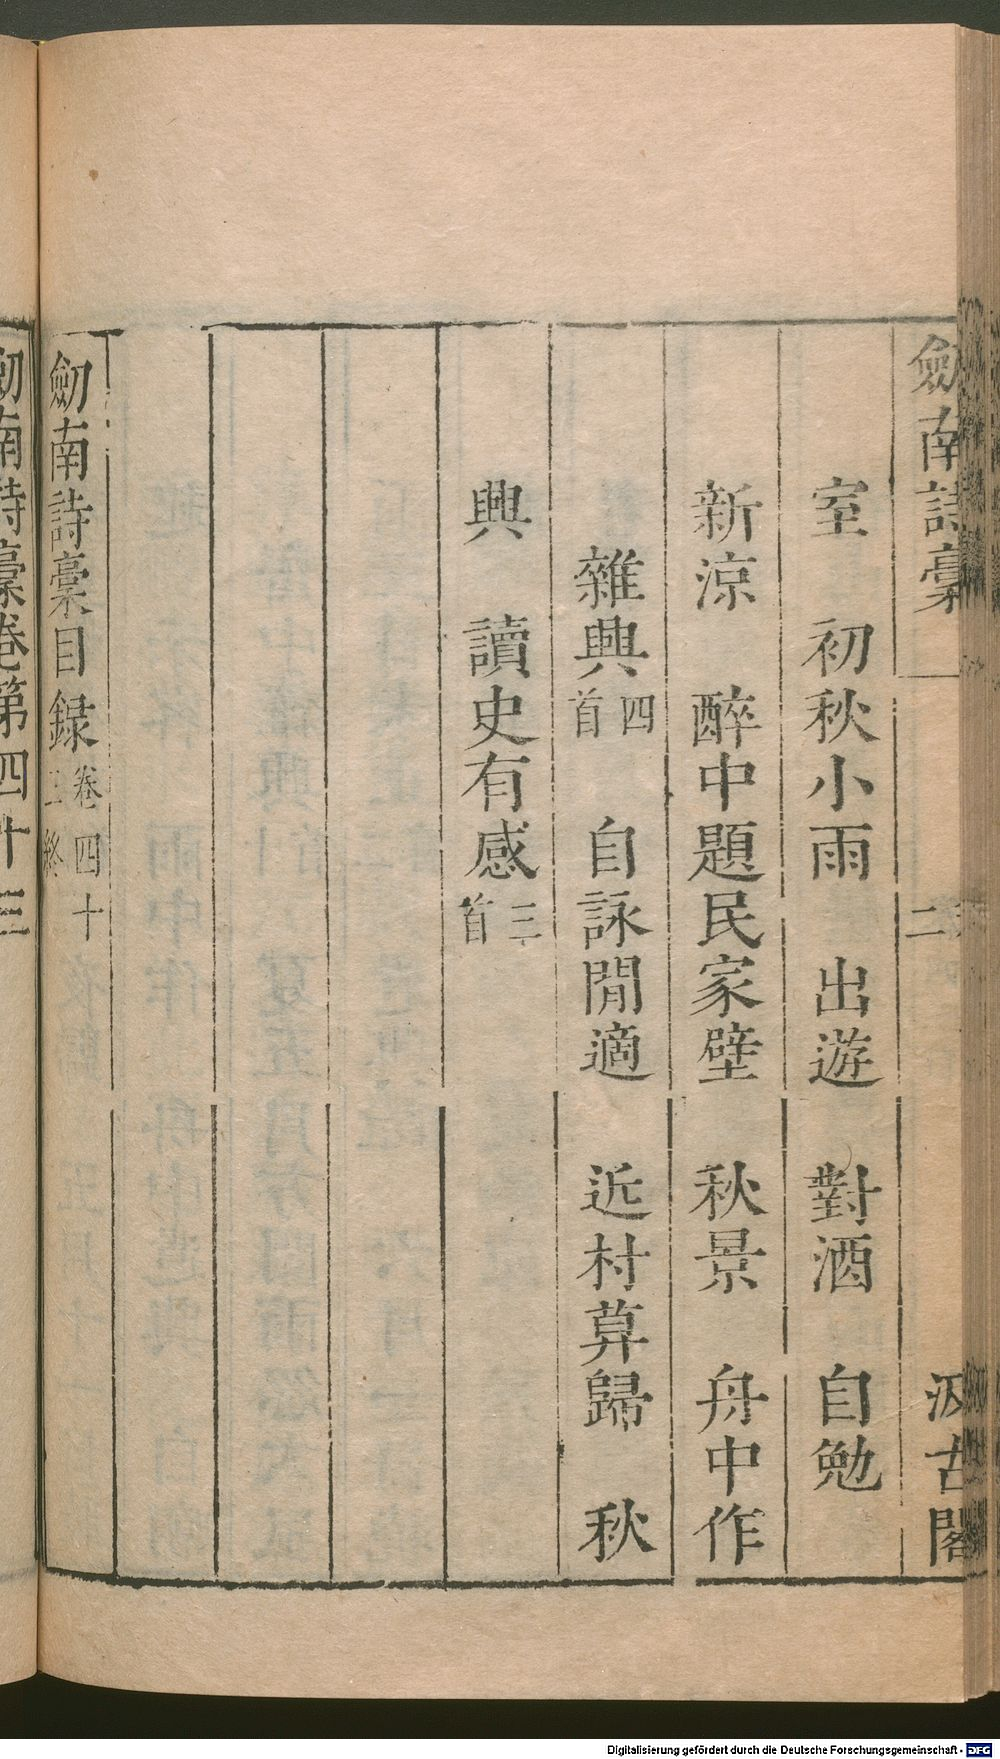 劒南詩稾 二 汲古閣
室 初秋小雨 出遊 對酒 自勉
新涼 醉中題民家壁 秋景 舟中作
雜興四首 自詠閒適 近村暮歸 秋
興 讀史有感三首
劒南詩稾目録卷四十三終
劒南詩稾卷第四十三
Digitalisierung gefördert durch die Deutsche Forschungsgemeinschaft - DFG